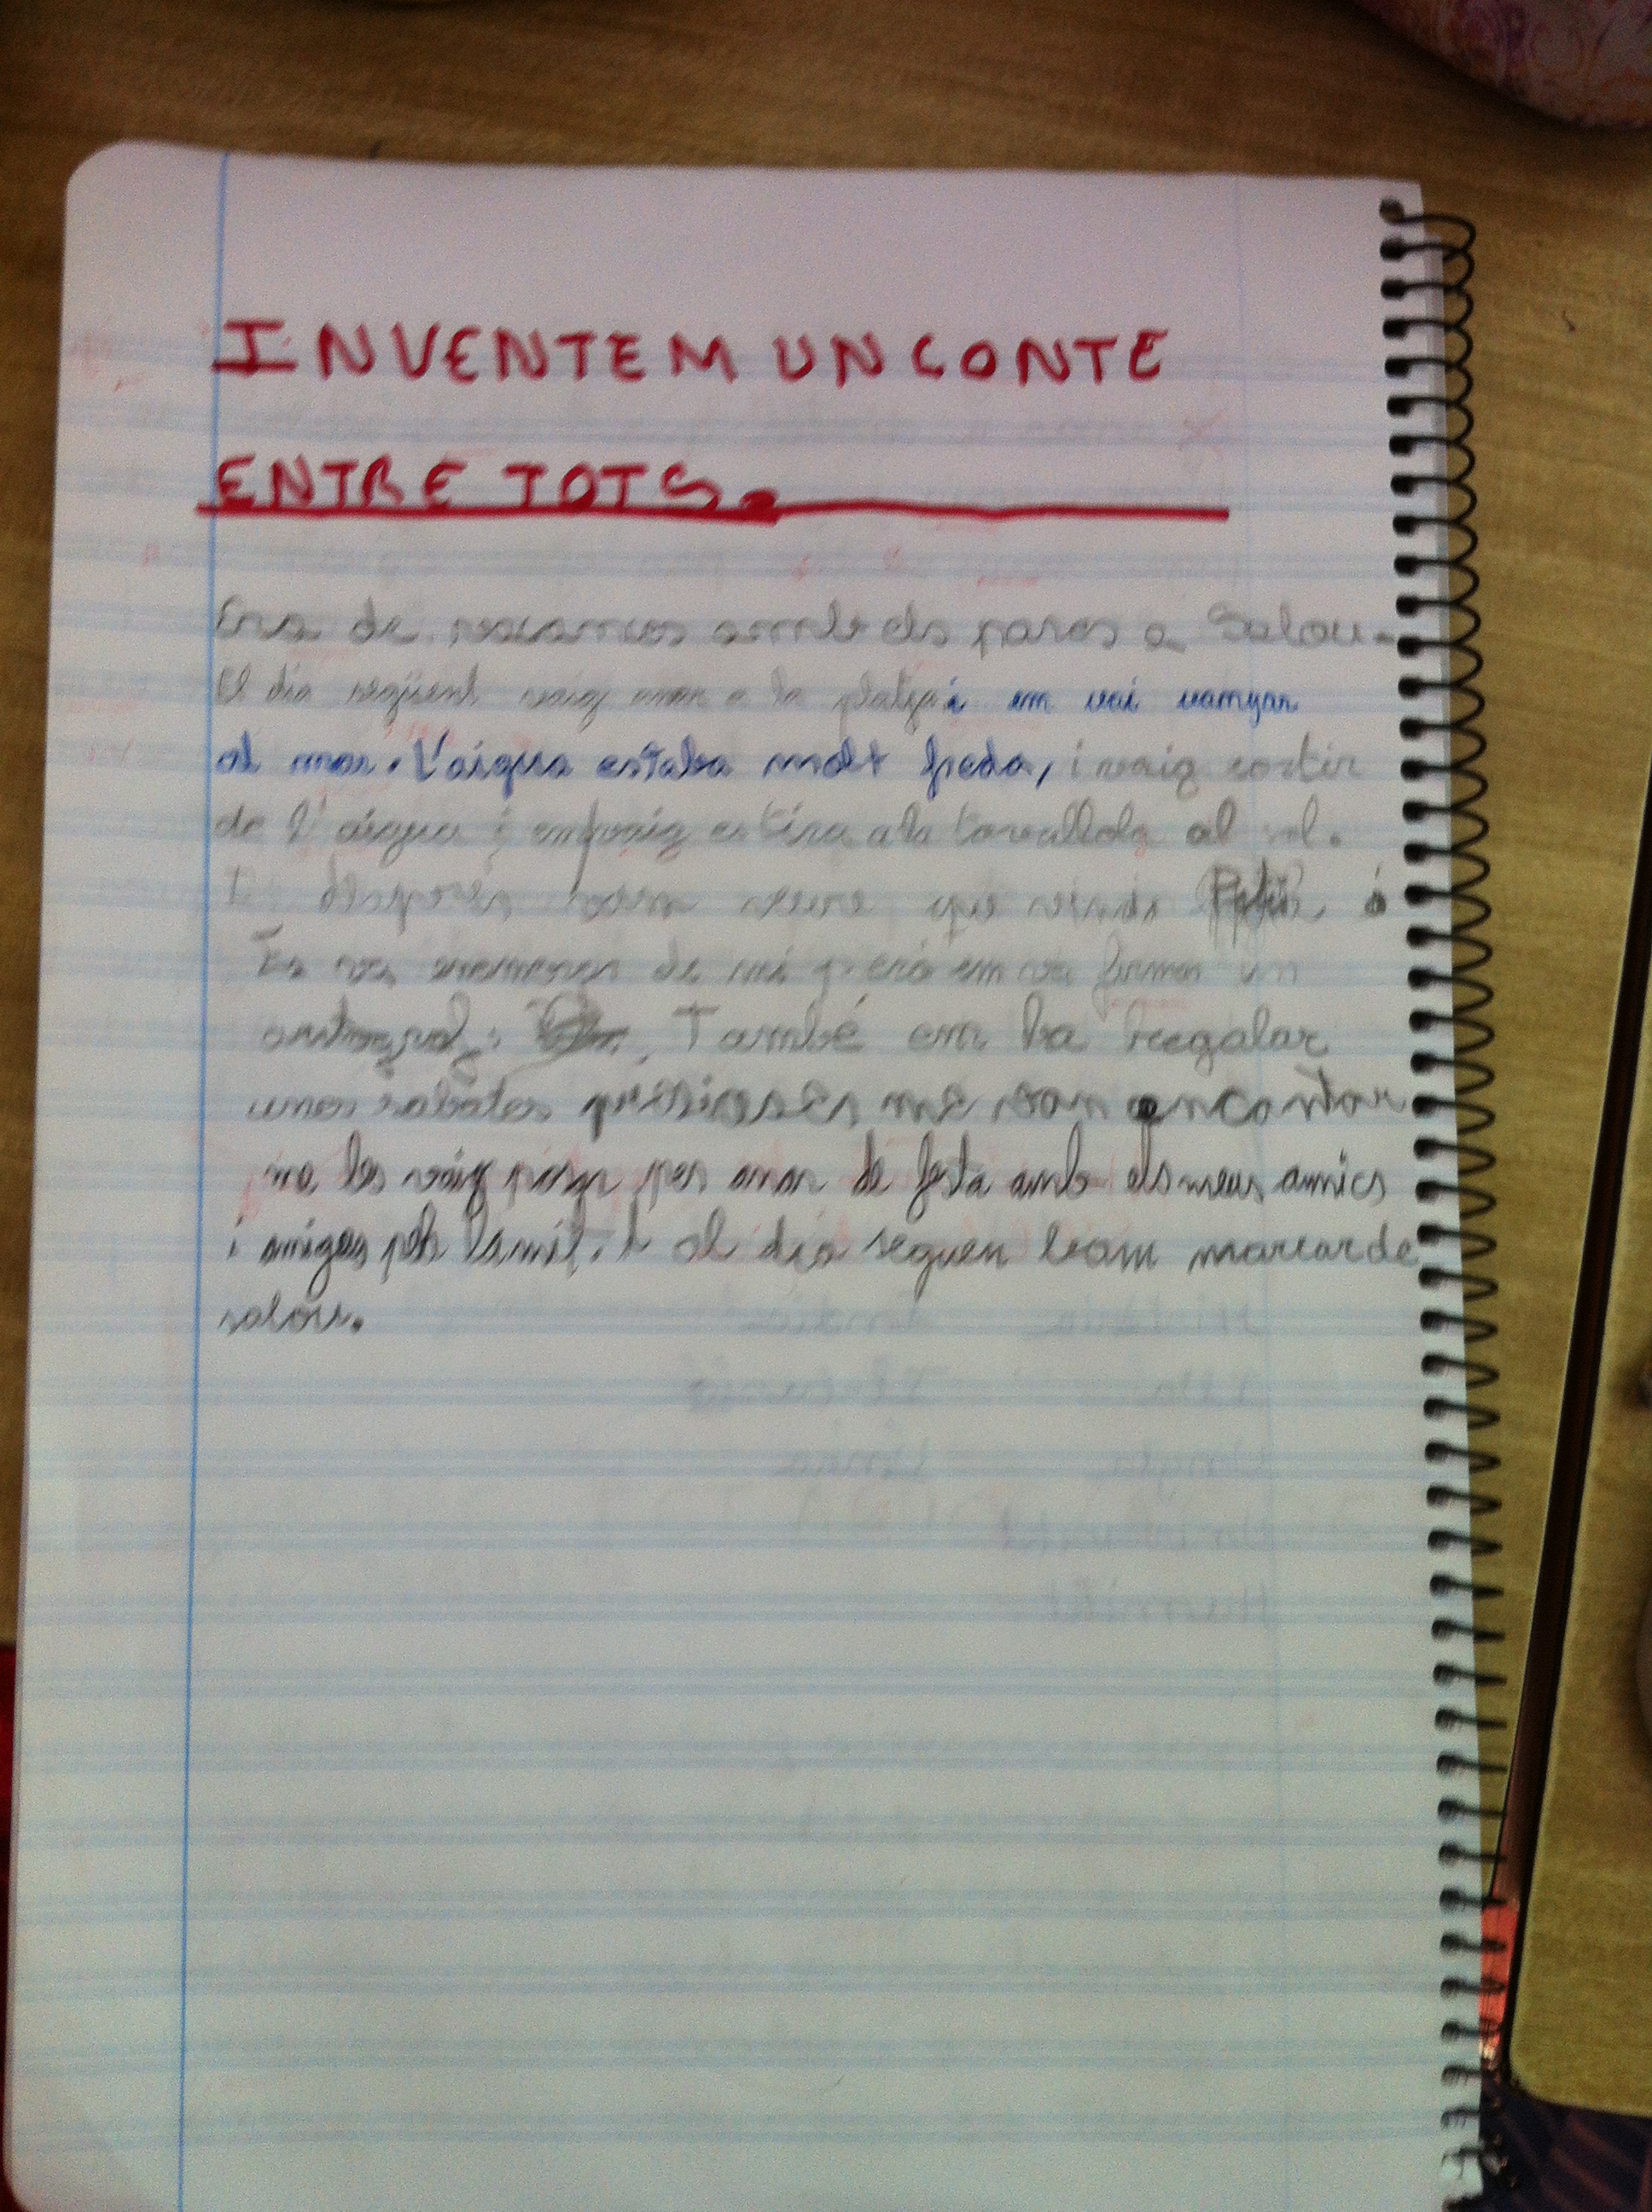 INVENTEM UN CONTE
ENTRE TOTS.
Era de vacances amb els pares a Salou.
El dia següent vaig anar a la platja i em vai vanyar
al mar. L'aigua estaba molt freda, i vaig sortir
de l'aigua i em vaig estira a la tovallola al sol.
I després vam veure que venia
Es va enamorar de mi pero em va firmar un
També em ba regalar
unes sabates presioses me van encantar
me les vaig posar per anar de festa amb els meus amics
i amigas per la nit. I al dia seguen bam marxar de
salou.